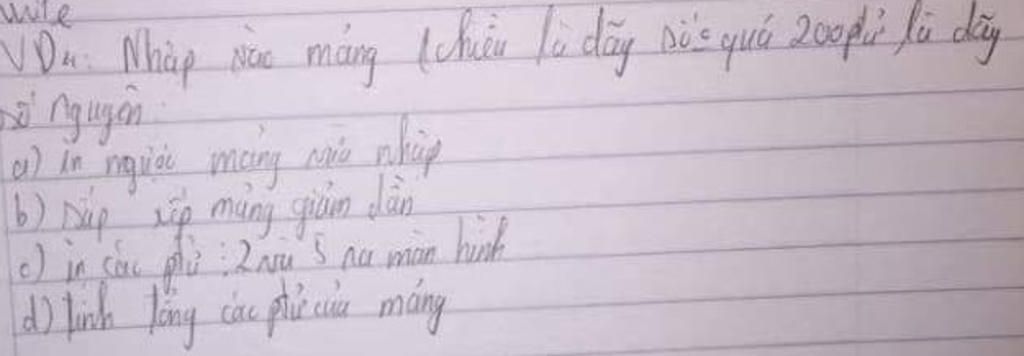 VD4: Nhập vào mảng 1 chiều là dãy số quá 200 ptử, là dãy
số nguyên
a) in ngược mảng vừa nhập
b) sắp xếp mảng giảm dần
c) in các ptử : 2 và 5 ra màn hình
d) tính tổng các ptử của mảng